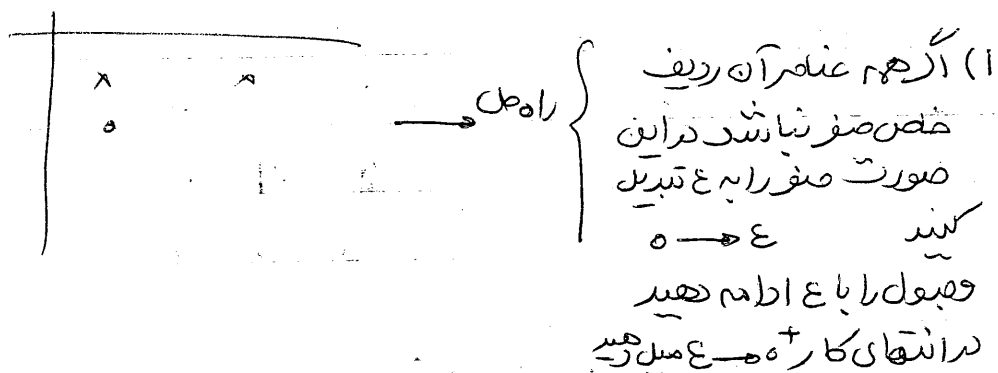 x x
0
→ راه حل
۱) اگر همه عناصر آن ردیف
خاص صفر نباشد در این
صورت صفر را به ε تبدیل
کنید 0 → ε
و جدول را با ε ادامه دهید
در انتهای کار ε → 0⁺ میل دهید